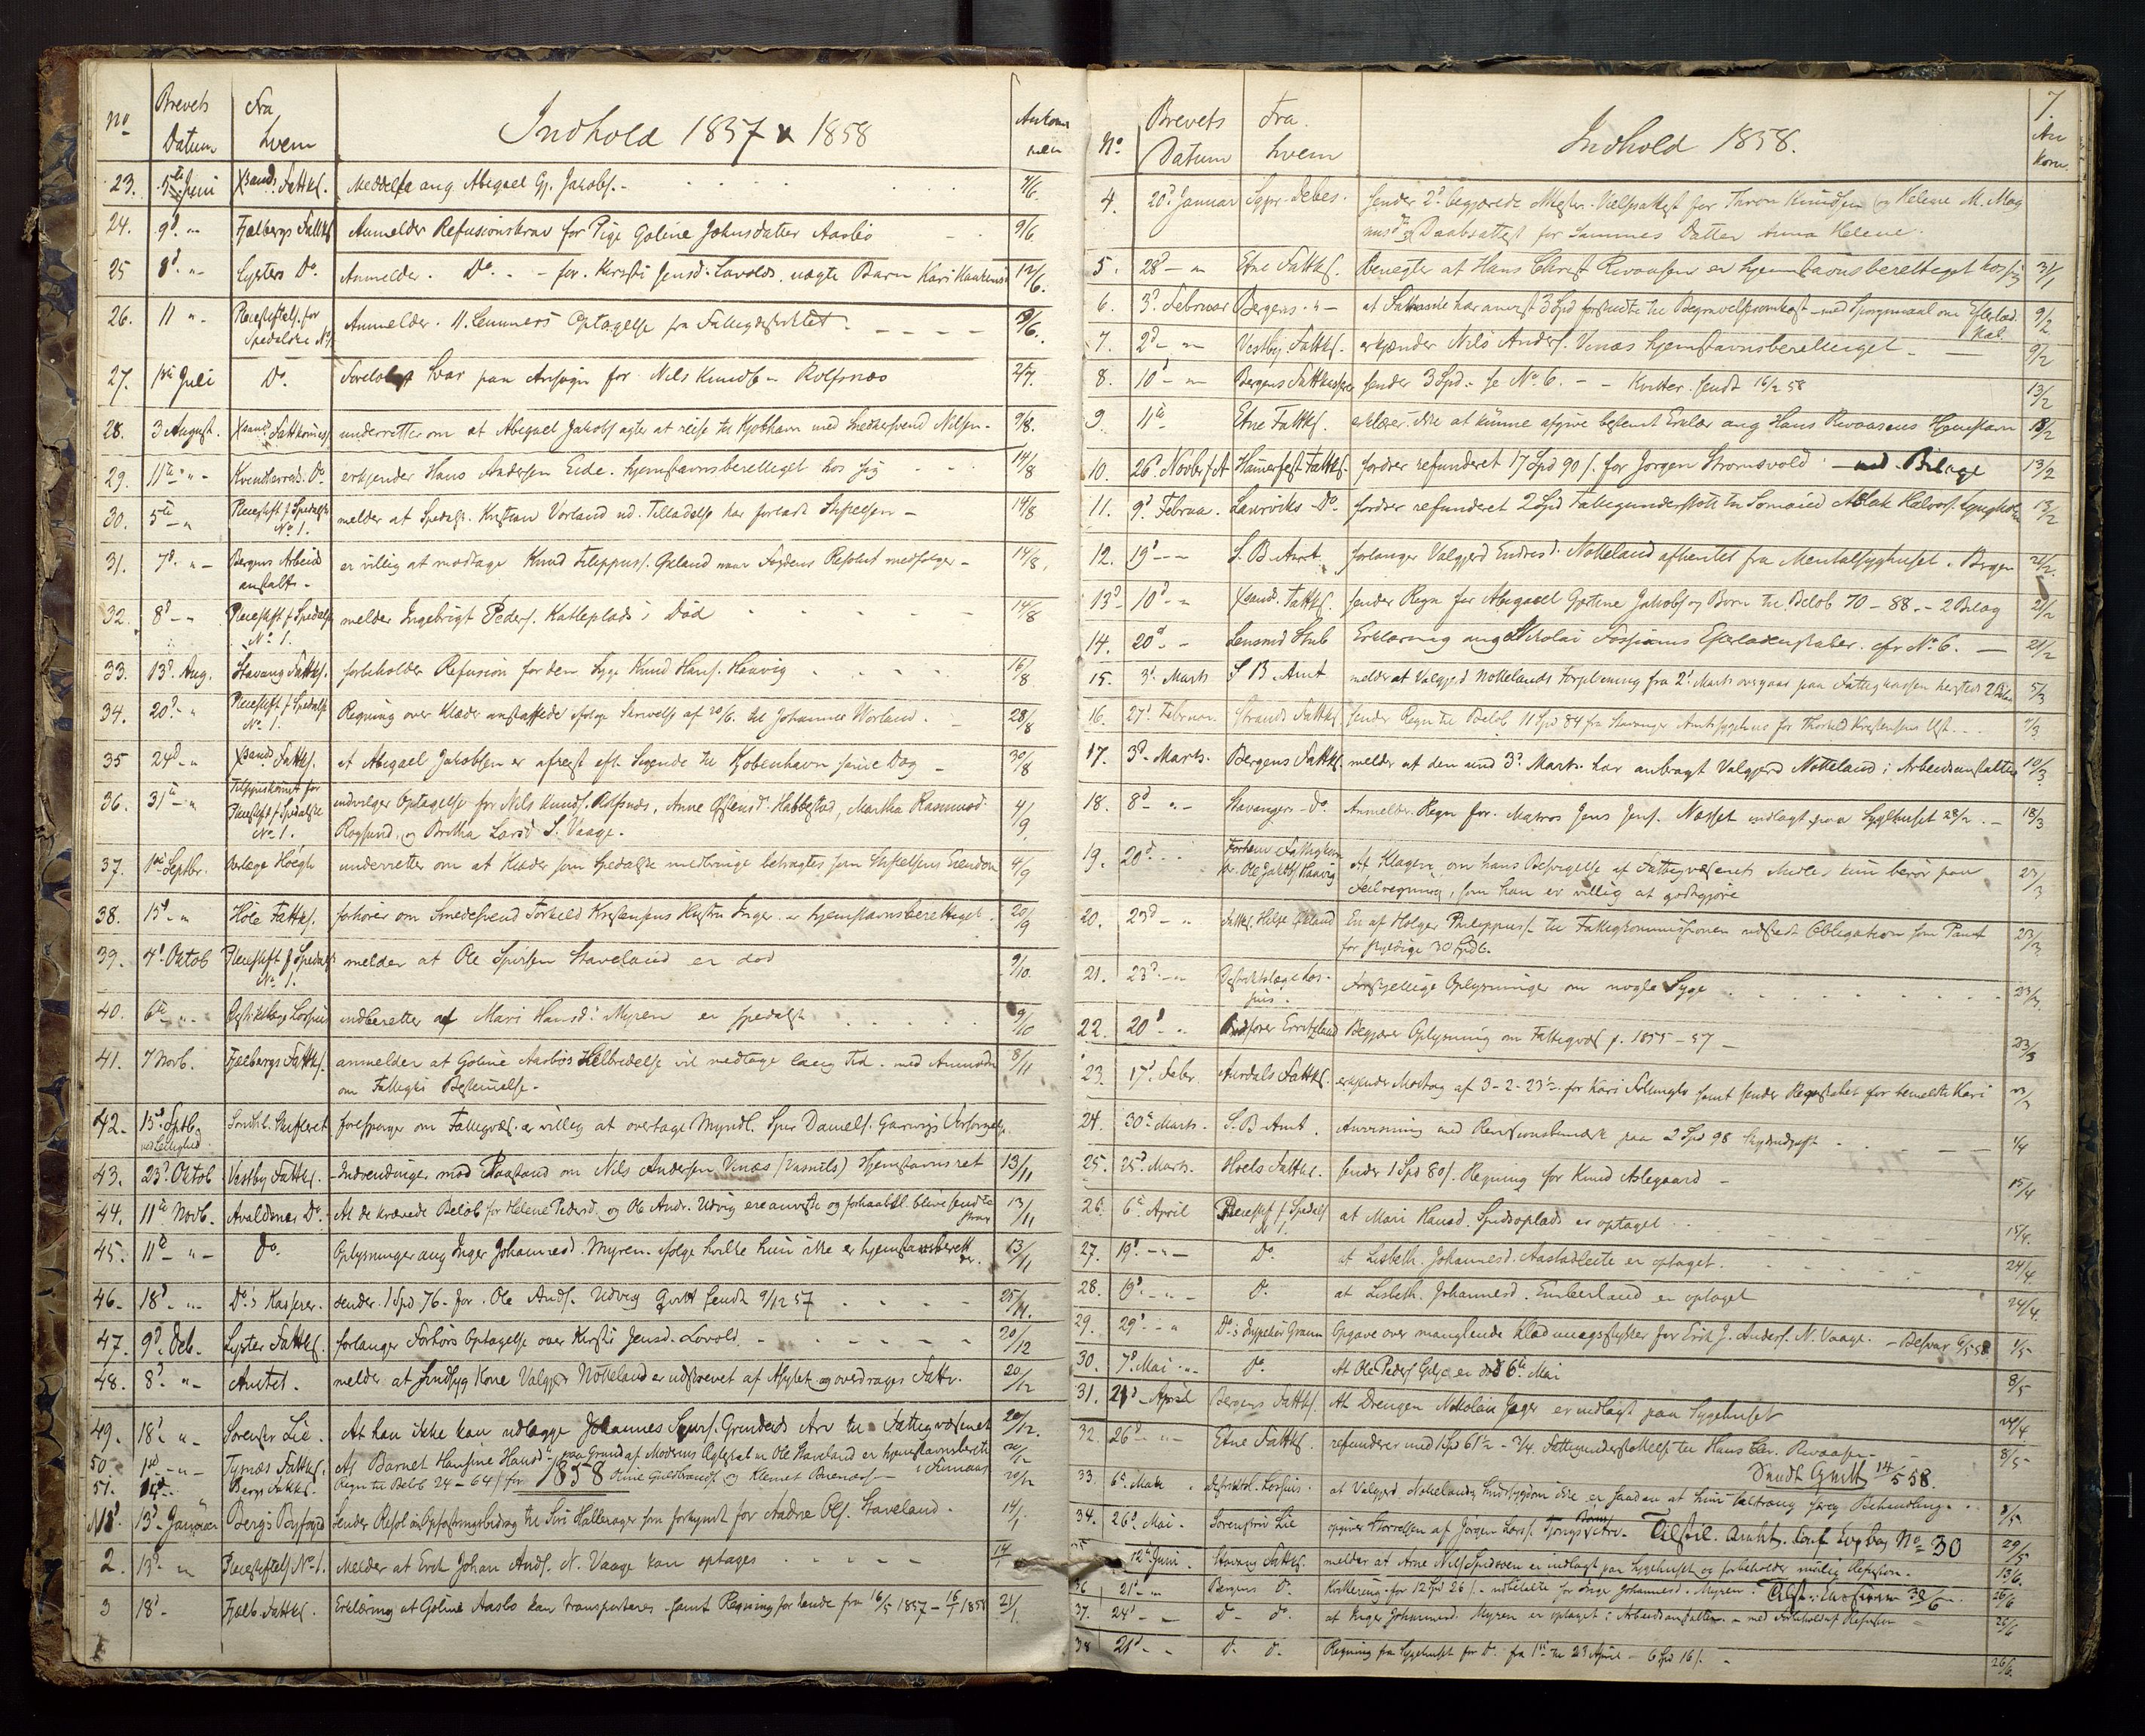 No Brevets Datum Fra hvem Indhold 1857 & 1858 Ankommen
23. 5te Juni Xsands Fattks. Meddelse ang Abigael Gj. Jakobs. - 7/6.
24. 9d " - Fjelbergs Fattks Anmelder Refusionskrav for Pige Goline Johnsdatter Aasbø 9/6.
25 8d " - Lysters Do. Anmelder. Do. - - for. Kersti Jensd. Lavolds uægte Barn Kari 12/6.
26. 11 " - Pleiestiftels. for Spedalske No 1 Anmelder. 11. Lemmers Optagelse fra Fattigdistriktet. - - - - 9/6.
27. 1ste Juli Do. Foreløbigt Svar paa Ansøgn for Nils Knuds - Rolfsnes 2/7.
28. 3 August. Xsands Fattkomiss underretter om at Abigael Jakobs agter at reise til Kjøbhavn med Snedkersvend Nilsen - 9/8.
29. 11te " - Kvindherreds Do. erkjender Hans Andersen Eide hjemstavnsberettiget hos sig - 14/8
30. 5te - " Pleiestift f Spedalske No 1. melder at Spedalsk. Kristian Vorland ud. Tilladelse har forladt Stiftelsen - 14/8
31. 7d. " - Bergens Arbeids anstalt - er villig at modtage Knud Filippus. Gjeland naar Fogdens Resolut medfølger - 14/8.
32. 8d - " Pleiestift f Spedalske No 1. melder Ingebrigt Peders. Katleplads's Død 14/8
33. 13d. Aug. Stavang Fattks. forbeholder Refusion for den syge Knud Hans. Haavig 16/8
34. 20d. " Pleiestift f Spedalske No 1. Regning over Klæder anskaffede ifølge Skrivelse af 20/6. til Johannes Vorland. - 28/8
35 24d - " Xsands Fattks. at Abigael Jakobsen er afreist efter Sigende til Kjøbenhavn samme Dag - 30/8
36. 31te - " Tilsynskomit for Pleiestift f Spedalske No 1. indvilger Optagelse for Nils Knuds. Rolfsnes, Anne Østensd. Habbestad, Martha Rasmusd.
Røgsund, og Britha Larsd S. Vaage. 4/9
37. 1ste Septbr. Overlæge Høegh underretter om at Klæder som Spedalske medbringe betragtes som Stiftelsens Eiendom 4/9
38. 15d - " Høle Fattks. forhører om Smedesvend Torkild Krestensens Hustru Inger. er hjemstavnsberettiget. 20/9
39. 4d. Oktob Pleiestift f Spedalsk No 1. melder at Ole Spersen Staveland er død 9/10.
40. 6te " - Distriktslæge Lossius indberetter at Mari Hansd: Myren er spedalsk 9/10
41. 7 Novb. Fjelbergs Fattks. anmelder at Goline Aasbøs Helbredelse vil medtage lang Tid. - med Anmodn 8/11
om Fattigks Bestemmelse. -
42. 15d Septb. Søndhl. Skifteret forespørger om Fattigvæs. er villig at overtage Myndl. Sper Daniels. Garvigs Forsørgelse.
43. 23d Oktob Vestby Fattks. - Indvendinger mod Paastand om Nils Andersen Vinæs (Vasnils) Hjemstavnsret 13/11
44. 11te Novb. Avaldsnes Do. At de krævede Beløb for Helene Pedersd. og Ole Andr. Udvig ere anviste og forhaabtl. blive sendte snar 13/11
45. 11te - " - Do. Oplysninger ang Inger Johannesd. Myren. ifølge hvilke hun ikke er hjemstavnsberett 13/11
46. 18d - " Do.'s Kasserer. sender. 1 Spd 76. for. Ole Ands. Udvig Qvitt sendt 9/12 57 25/11.
47. 9d. Deb. Lyster Fattks. forlanger Forhørs Optagelse over Kirsti Jensd. Lovold. - 20/12
48. 8d. " - Amtet. melder at Sindssyg Kone Valgjer Notteland er udskrevet af Asylet og overdrages Fattv. 20/12
49. 18d " - Sorenskr Lie. At han ikke kan udlægge Johannes Spers. Grindeids Arv til Fattigvæsenet 20/12.
50 1ste - " - Tysnæs Fattks. At Barnet Hansine Hansd: paa Grund af Moderens Ægteskab m Ole Staveland er hjemstavnsberett
51. Bergs Fattks. Regn til Beløb 24 - 64/ for 1858 Oline Guldbrands og Klemet 20/12
1 13d. Januar Bergs Sender Resol om Opfostringsbidrag til Siri Hallerager fra forkyndt for Andre Ols. Staveland. 14/1
2. 13d " Pleiestiftels No 1. Melder at Erik Johan Ands. N. Vaage kan optages 14/1
3 18d - Fjelb. Fattks. Erklæring at Goline Aasbø kan transporteres - samt Regning for hende fra 16/5 1857 - 16/1 1858 21/1.
7.
No. Brevets Datum Fra. hvem Indhold 1858. An kom.
4. 20d Januar Sogpr. Debes. sender 2d begjærede Attester. Vielsesattest for Thron Knudsen og Helene M. Mag
nusd og Daabsattest for Sammes Datter Anna Helene.
5. 28d - " Etne Fattks. Benegter at Hans Christ Rivaasen er hjemstavnsberettiget hos sig 31/1
6. 3d. Februar Bergens - " - at Fattkasse har anvist 3 Spd forskudte til Begravelsesomkost - med Spørgsmaal om Efterlad. 9/2
7. 2d - " Vestby Fattks. erkjender Nils Anders. Vinæs hjemstavnsberettiget. - 9/2
8. 10d - " Bergens Fattkasserer sender 3 Spd. - se No. 6. - - Kvitter. sendt 16/2 58 13/2
9. 11te Etne Fattks. erklærer ikke at kunne afgive bestemt Erklær ang Hans Rivaasens Hjemstavn 18/2
10. 26d Novbr f A Hamerfest Fattks. fordrer refunderet 17 Spd 90 s. for Jørgen Strømsvold - med Bilage 13/2
11. 9d. Februa. Laurviks Do. fordrer refunderet 2 Spd Fattigunderstøtt til Sømand Aslak Halvors. Lyngholm 13/2
12. 19d - - S. B Amt. forlanger Valgjerd Endresd. Notteland afhentet fra Mentalsygehuset i Bergen 21/2.
13d 10d - " Xsands Fattks. sender Regn for Abigaael Gjertine Jakobs og Børn til Beløb 70 - 88. - 2 Bilag 21/2
14. 20d - - Lensmd Stub Erklæring ang Nikolai Efterladenskaber. cfr No 6. - 21/2
15. 3d. Marts S B Amt melder at Valgjerd Nottelands Forpleining fra 2d Marts overgaar paa Fattigkassen hersteds 2 Bilag 5/3
16. 27d. Februar. Strands Fattks sender Regn til Beløb 11 Spd 84 fra Stavanger Amtssygehus for Thorkild Krestensens Hst. - 7/3
17. 3d. Marts. Bergens Fattks. melder at den und 3d. Marts. har anbragt Valgjerd Notteland i Arbeidsanstalten 10/3.
18. 8d - " - Stavangers - Do. Anmelder Regn for. Matros Jens Jens. Næsset indlagt paa Sygehuset 28/2. - 18/3
19. 20d - - Forhen Fattigkom ds. Ole Jakobs Haavig At Klagen, om hans Besvigelse af Fattigvæsenets Midler kun beror paa
Feilregning, som han er villig at godtgjøre 23/3
20. 23d - " Fattks. Helge Gjeland En af Helger Philippus. til Fattigkommissionen udstedt Obligation som Pant
for skyldige 30 Spdl. 23/3
21. 23d - " Distriktslæge Los- sius. Forskjellige Oplysninger om nogle Syge 23/3.
22. 20d - " Begjærer Oplysning om Fattigvæs f. 1855 - 57 - 23/3
23. 17d. Febr. Aurdals Fattks. erkjender Modtag af 3-2-23½. for Kari Follingls samt sender Regnskabet for bemeldte Kari 23/3
24. 30te Marts. S. B Amt. Anvisning med Revisionsbemærk paa 2 Spd 98 1/4
25. 25d. Marts. Hoels Fattks. sender 1 Spd 80/. Regning for Knud Aslegaard - 15/4
26. 6te April Pleiestif f Spedals No 1. at Mari Hansd. er optaget. 15/4.
27. 19d. - " - Do. at Lisbeth. Johannesd. Aastadleite er optaget. 24/4
28. 19d. - " - Do. at Lisbeth. Johannesd. Emberland er optaget 24/4.
29. 29d. - " Do.'s Inspektør Gram Opgave over manglende Klædningsstykker for Erik J. Anders. N. Vaage. - Besvar 6/5 58 1/5
30. 7d. Mai - " Do. At Ole Peders Gilje er død 6te Mai 8/5
31. 21d - April Bergens Fattks. At Drengen Nikolai Jæger er indlagt paa Sygehuset 24/4
32. 26d - " - Etne Fattks. refunderer med 1 Spd 61½ - 3/4. Fattigunderstøttelse til Hans Chr. Rivaasen - 8/5
Sendt Qvitt 14/5 58.
33. 6te Mai. Distriktsl. Lossius. at Valgjerd Nottelands Sindssygdom ikke er saadan at hun tiltrænger Behandling. 8/5
34. 26d. Mai. Sorenskriv Lie opgiver Størrelsen af Jørgen Lars. Arv. - Tilstil. No 30 29/5
35 12te Juni. Stavang Fattks. melder at Arne Nils Svidsven er indlagt paa Sygehuset og forbeholder mulig Refusion. 13/6.
36 21d - " Bergens Do. Kvittering for 12 Spd 26 s. - udbetalte for Inger Johannesd. Myren. 30/6 26/6
37. 24d - " - Do - Do. at Inger Johannesd. Myren er optaget i Arbeidsanstalten - med Forbehold af Refusion 26/6
38 21d - " Do. Do. Regning fra Sygehuset for Do. fra 1ste til 23 April - 6 Spd 16/. - 26/6.